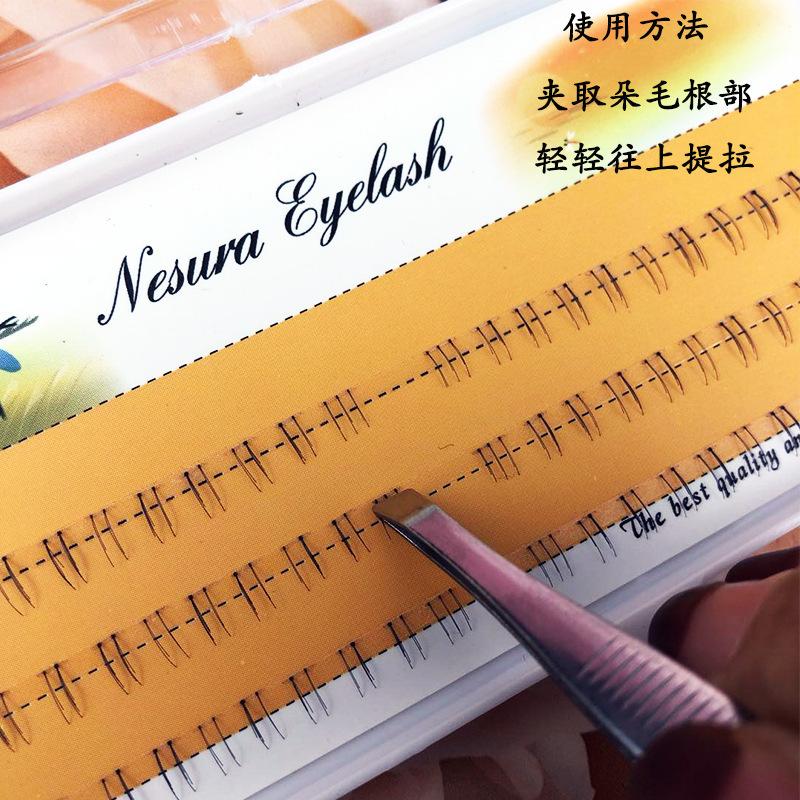 使用方法
夹取朵毛根部
轻轻往上提拉
Nesura Eyelash
The best quality